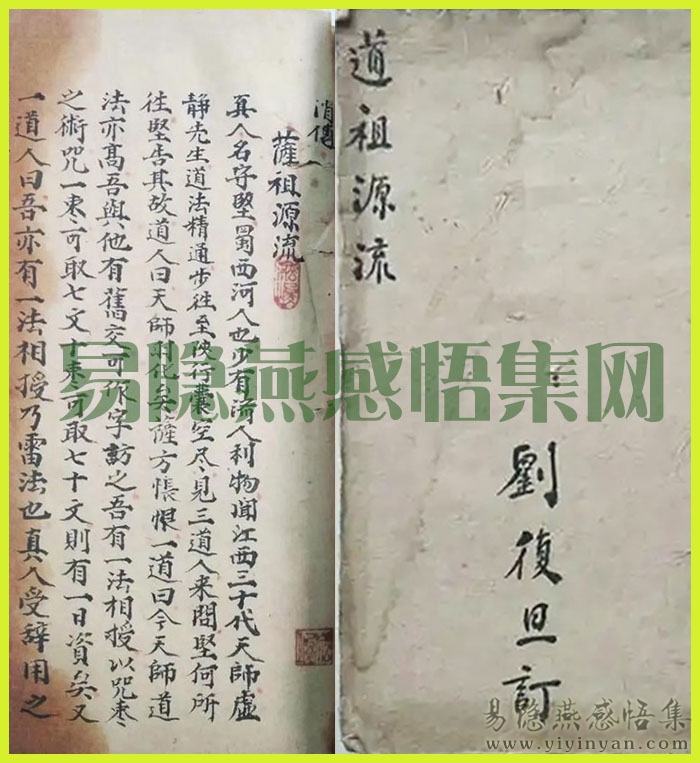 道祖源流
劉復旦訂
薩祖源流
真人名字堅蜀西河人也少有濟人利物聞江西三十代天師虛
靜先生道法精通步徃至彼行囊空尽見三道人来問堅何所
徃堅告其故道人曰天師羽化矣薩方悵恨一道曰今天師道
法亦髙吾與他有舊交可作字訪之吾有一法相授以咒枣
之術咒一枣可取七文十枣可取七十文則有一日資矣又
一道人曰吾亦有一法相授乃雷法也真人受辞用之
易隐燕感悟集网
易隐燕感悟集
www.yiyinyan.com